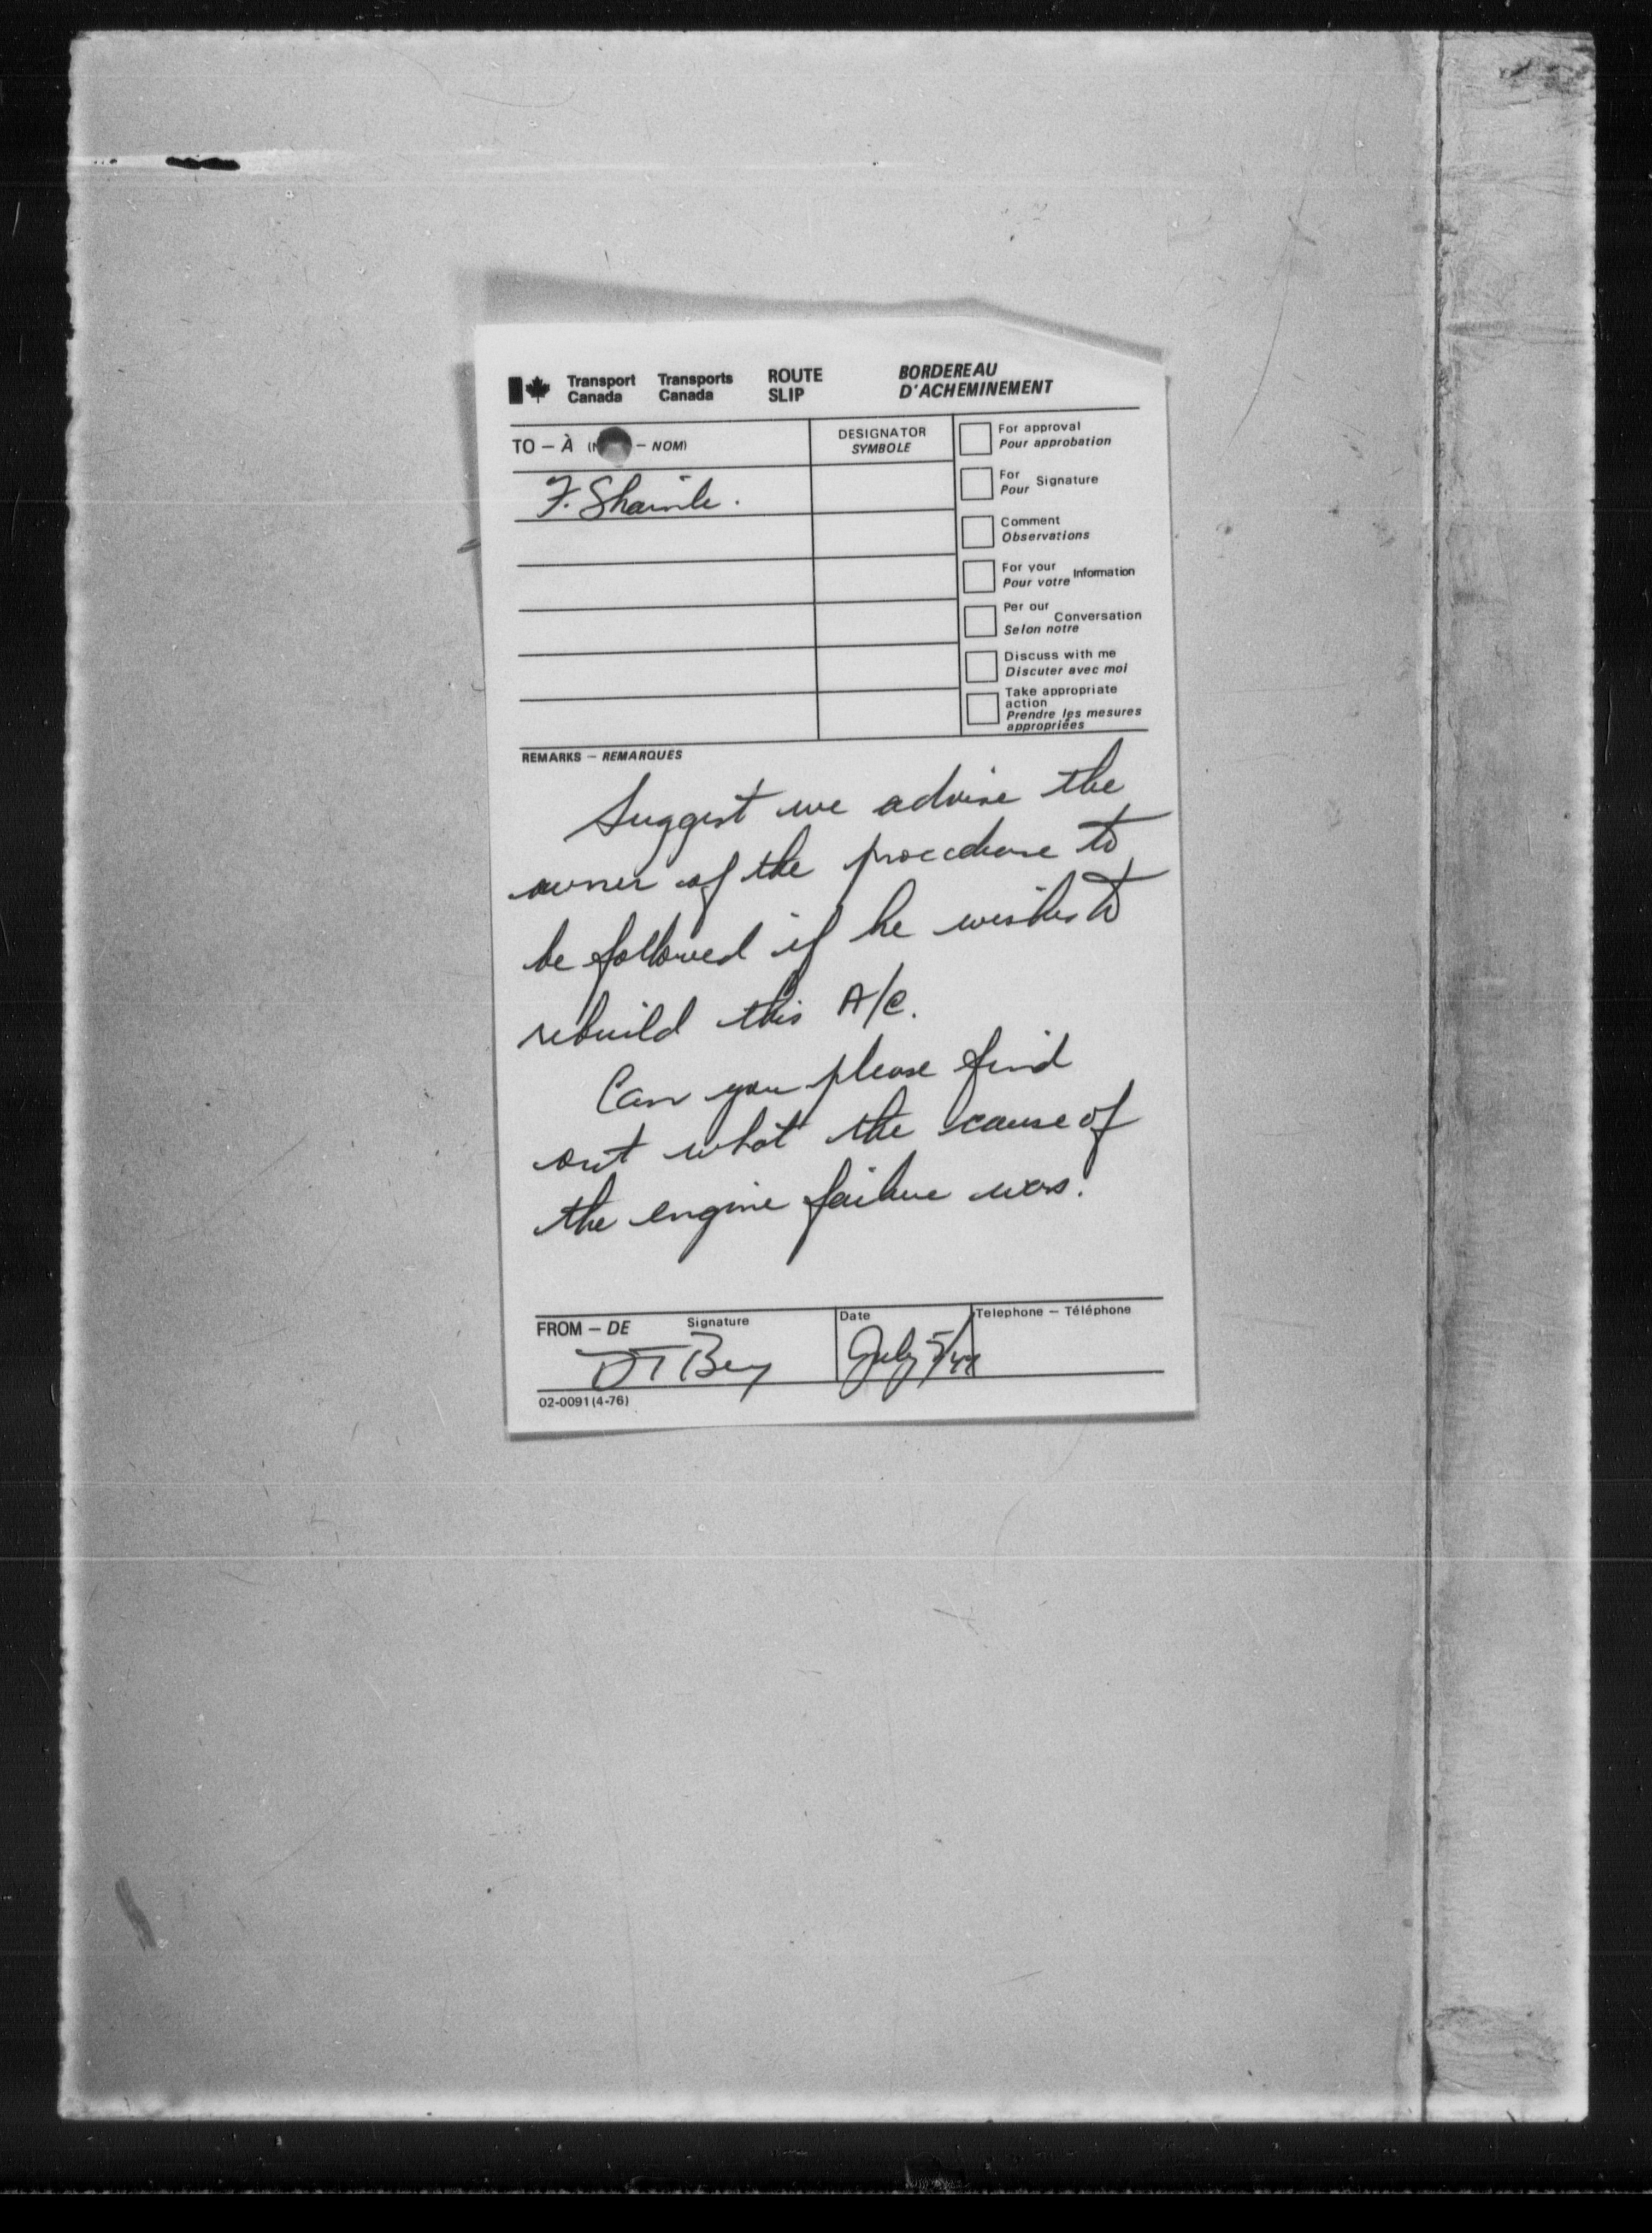 Transport Canada Transports Canada ROUTE SLIP BORDEREAU D'ACHEMINEMENT
TO – À – NOM)
DESIGNATOR
SYMBOLE
F.
For approval
Pour approbation
For Pour Signature
Comment
Observations
For your Pour votre Information
Per our Selon notre Conversation
Discuss with me
Discuter avec moi
Take appropriate
action
Prendre les mesures
appropriées
REMARKS – REMARQUES
Suggest we advise the
owner of the procedure to
be followed if he wishes to
rebuild this A/C.
Can you please find
out what the cause of
the engine failure was.
FROM – DE Signature
Date
July 5/
Telephone – Téléphone
02-0091 (4-76)